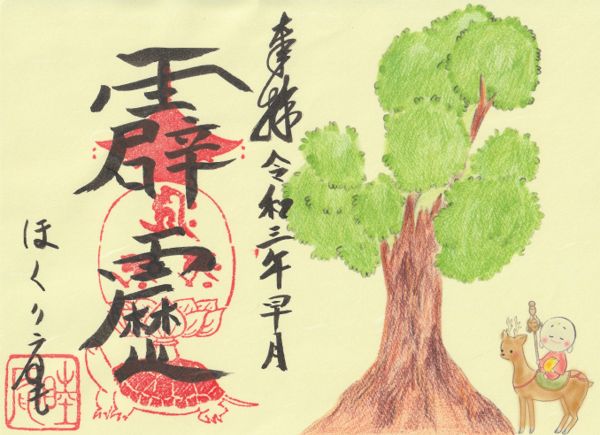 奉拝 令和三年早月
霹靂
ほくり庵